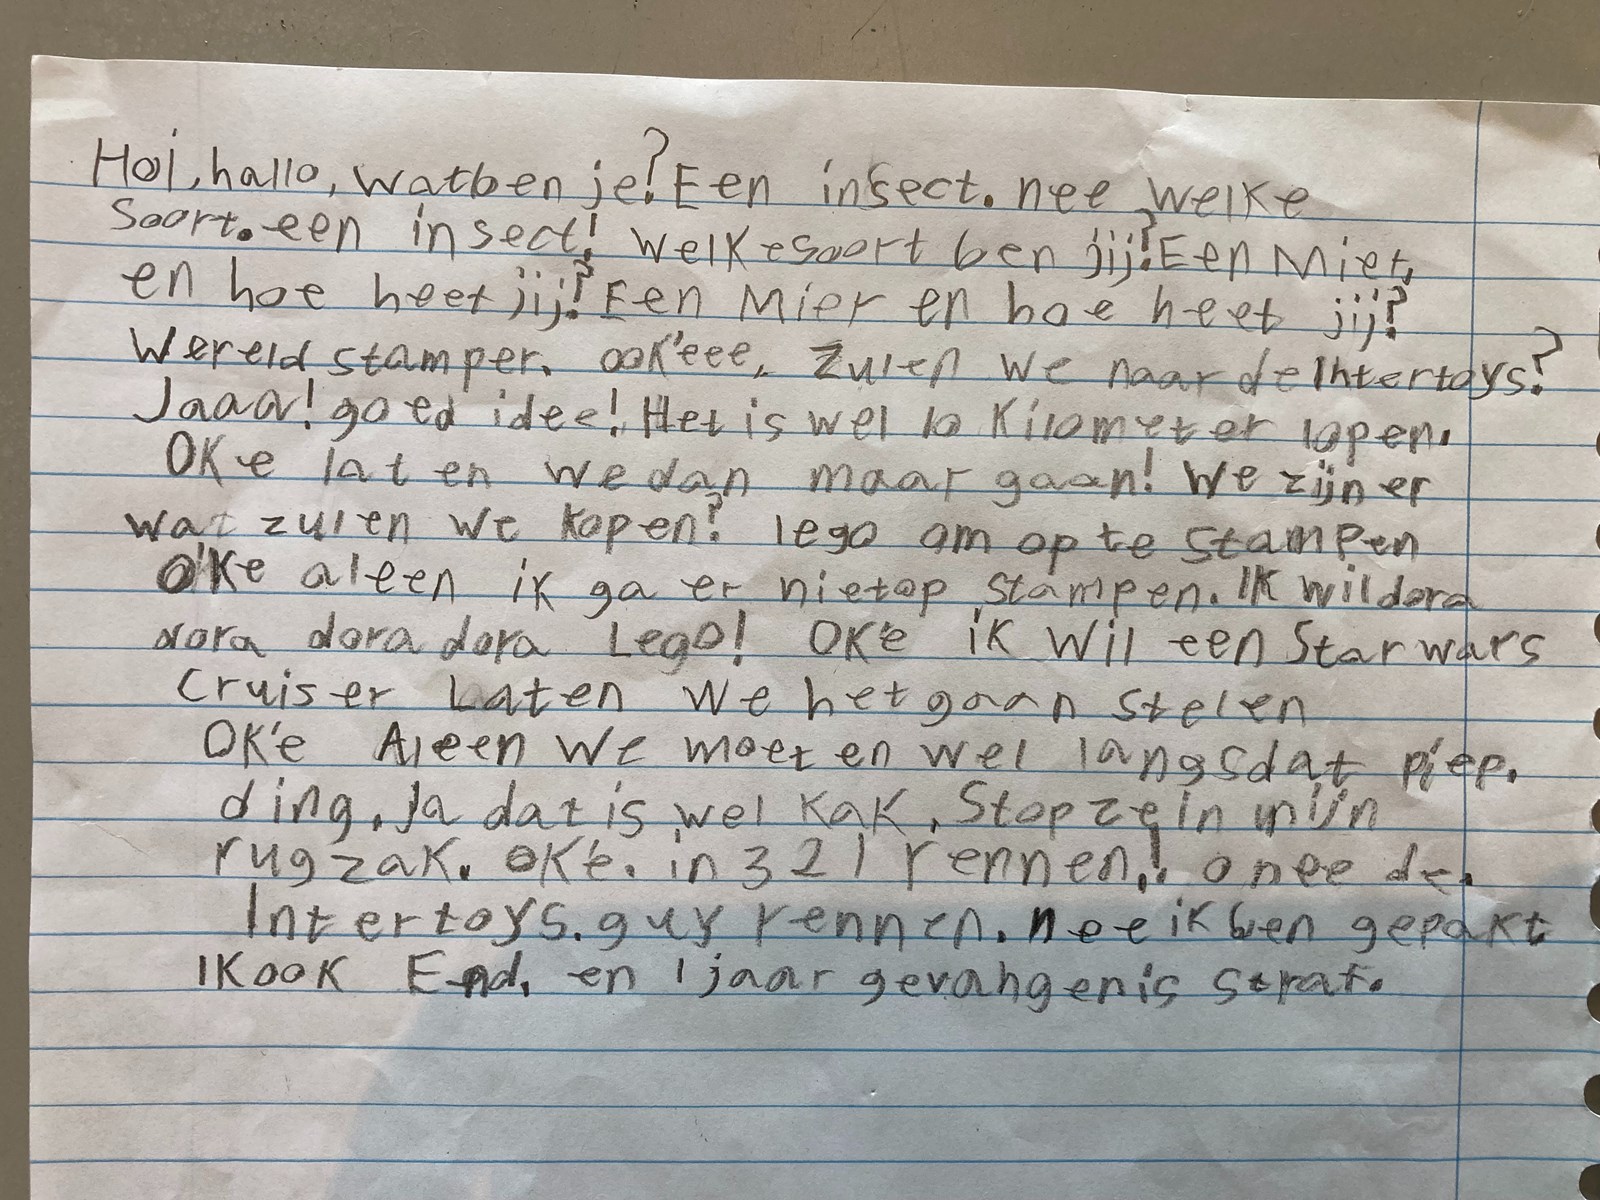 Hoi, hallo, watben je? Een insect. nee welke
Soort. een insect! welkesoort ben jij? Een Mier,
en hoe heet jij? Een Mier en hoe heet jij?
Wereld stamper. ook'eee, Zulen we naar de Intertoys?
Jaaa! goed idee! Het is wel 10 Kilometer lopen.
OKe laten we dan maar gaan! We zijn er
wat zulen we kopen? lego om op te stampen
o'Ke aleen ik ga er nietop stampen. Ik wil dora
dora dora dora Lego! OKé ik Wil een Star wars
Cruiser Laten we het gaan stelen
OK'e Aleen we moeten wel langs dat piep.
ding, Ja dat is wel KaK, Stop ze in mijn
rugzaK. oKé. in 3 2 1 rennen!. o nee de.
Intertoys. guy rennen. nee ik ben gepakt
IK ooK End, en 1 jaar gevangenis straf.